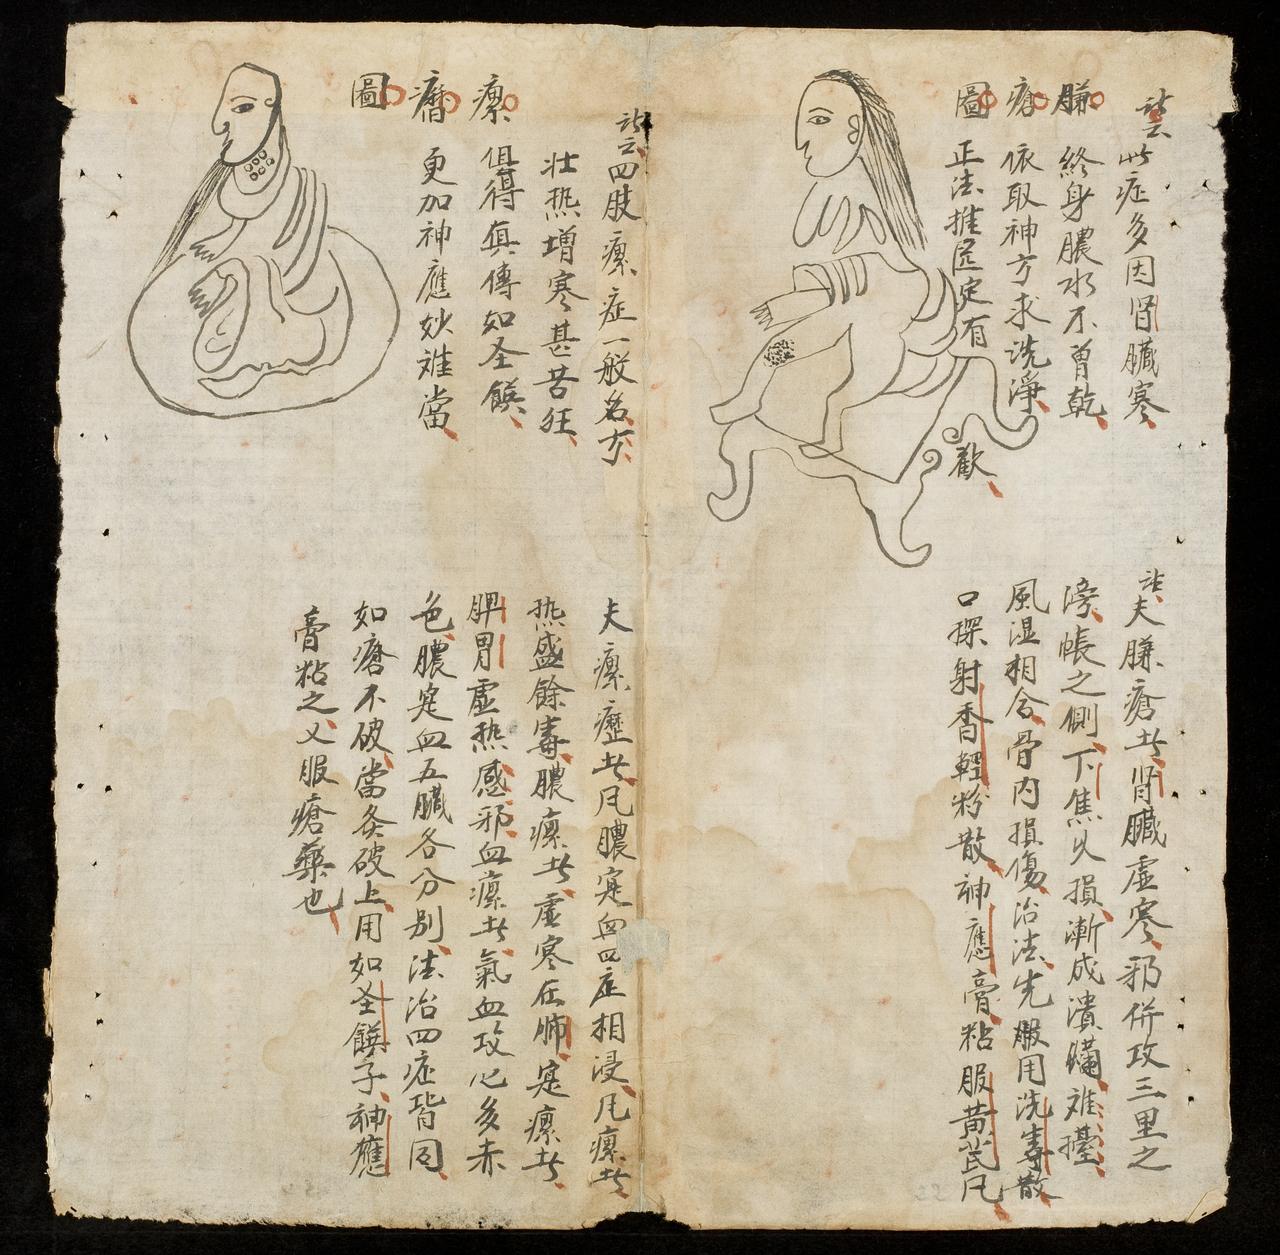 訣云此症多因肾臟寒
臁終身膿水不曾乾
瘡依取神方求洗淨
圖正法推匡定有
歡
訣夫臁瘡者肾臟虛寒邪併攻三里之
滂帳之側下焦久損漸成潰爛难
風湿相合骨内損傷治法先服用洗毒散
口摖射香輕粉散神應膏粘服黄芪凡
訣云四肢瘰症一般名方
壮热增寒甚苦狂
瘰俱得真傳如圣饌
癠更加神應妙难當
圖
夫瘰癧者凡膿寔血四症相浸凡瘰者
热盛餘毒膿瘰者虛寒在肺寔瘰者
脾胃虛热感邪血瘰者氣血攻心多赤
色膿寔血五臟各分别法治四症皆同
如瘡不破當灸破上用如圣饌子神應
膏粘之又服瘡藥也